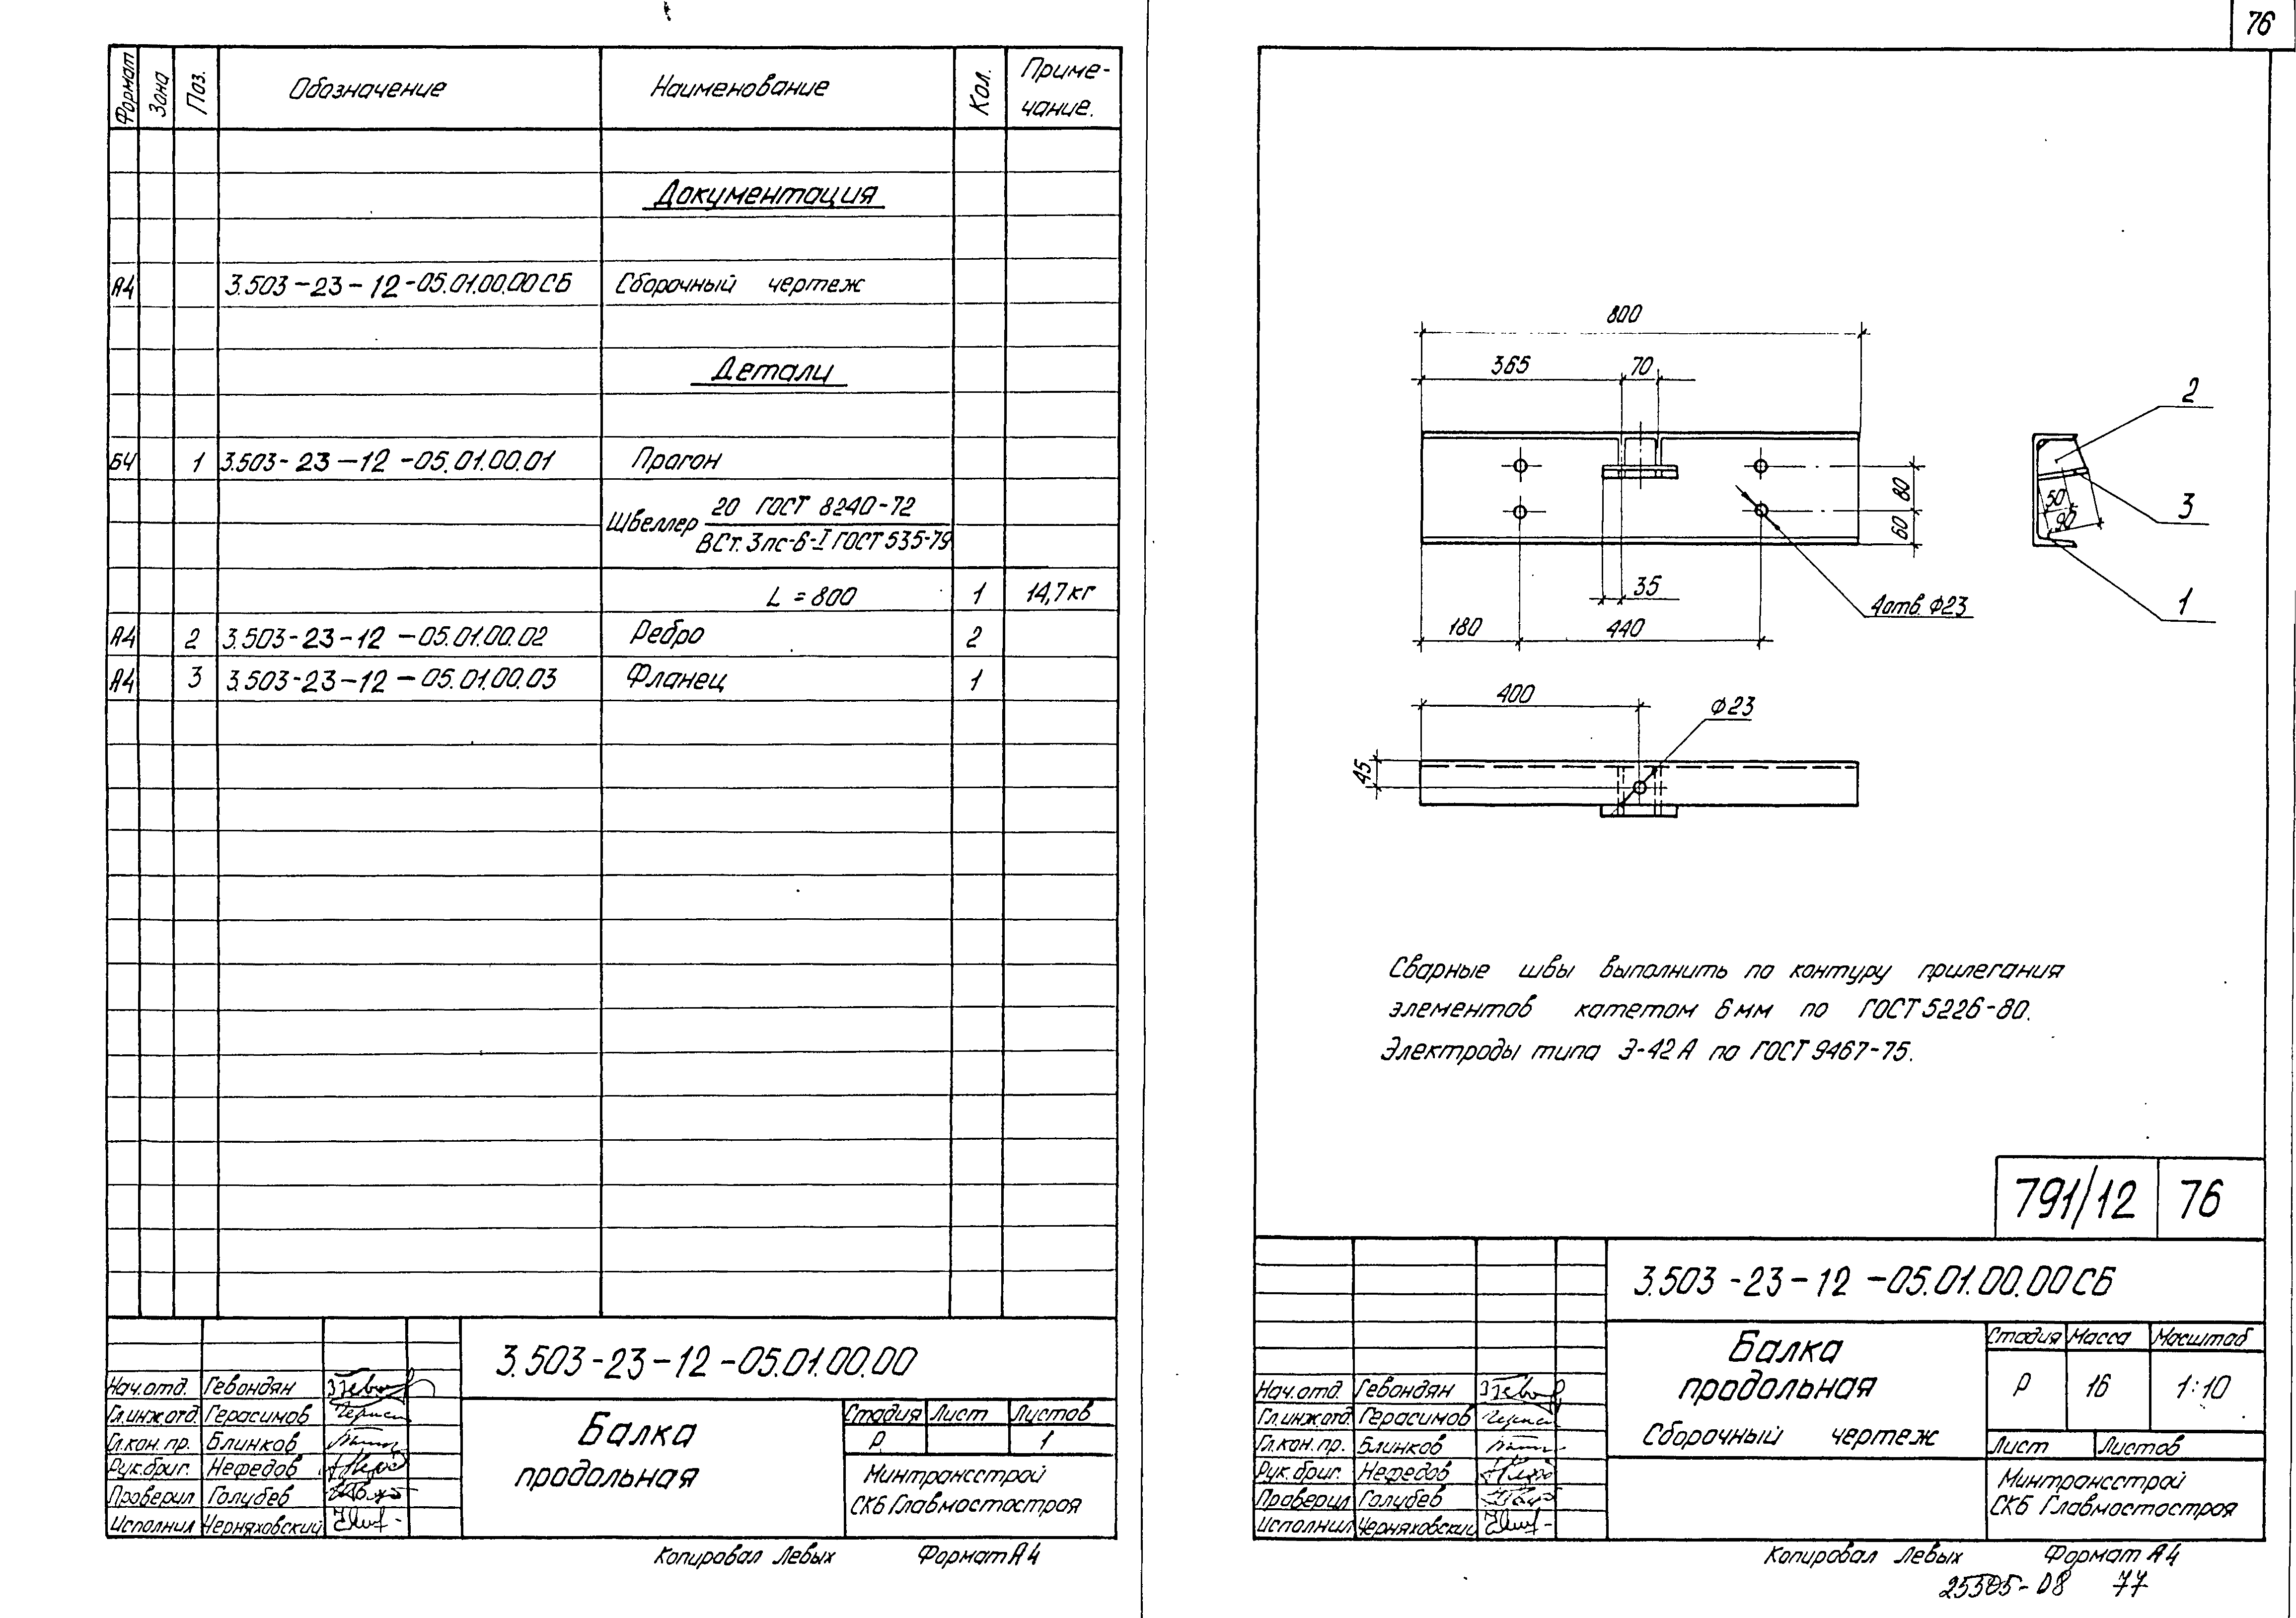 Формат Зона Поз. Обозначение Наименование Кол. Приме-
чание.
Документация
А4 3.503-23-12-05.01.00.00СБ Сборочный чертеж
Детали
БЧ 1 3.503-23-12-05.01.00.01 Прогон
Швеллер 20 ГОСТ 8240-72
ВСт.3пс-6-I ГОСТ 535-79
L = 800 1 14,7кг
А4 2 3.503-23-12-05.01.00.02 Ребро 2
А4 3 3.503-23-12-05.01.00.03 Фланец 1
3.503-23-12-05.01.00.00
Нач.отд. Гевондян
Гл.инж.отд. Герасимов
Гл.кон.пр. Блинков
Рук.бриг. Нефедов
Проверил Голубев
Исполнил Черняховский
Балка
продольная
Стадия Лист Листов
Р 1
Минтрансстрой
СКБ Главмостостроя
Копировал Левых Формат А4
76
800
365 70
2
80
50
3
90
60
35
4отв. Ф23
1
180 440
400
Ф23
45
Сварные швы выполнить по контуру прилегания
элементов катетом 6мм по ГОСТ 5226-80.
Электроды типа Э-42А по ГОСТ 9467-75.
791/12 76
3.503-23-12-05.01.00.00СБ
Нач.отд. Гевондян
Гл.инж.отд. Герасимов
Гл.кон.пр. Блинков
Рук.бриг. Нефедов
Проверил Голубев
Исполнил Черняховский
Балка
продольная
Сборочный чертеж
Стадия Масса Масштаб
Р 16 1:10
Лист Листов
Минтрансстрой
СКБ Главмостостроя
Копировал Левых Формат А4
25305-08 77